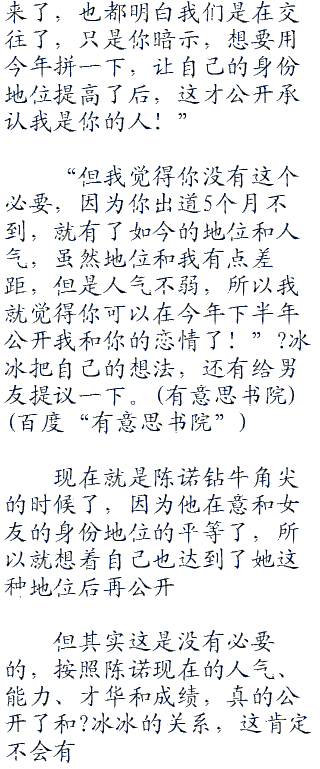 来了，也都明白我们是在交
往了，只是你暗示，想要用
今年拼一下，让自己的身份
地位提高了后，这才公开承
认我是你的人！”
“但我觉得你没有这个
必要，因为你出道5个月不
到，就有了如今的地位和人
气，虽然地位和我有点差
距，但是人气不弱，所以我
就觉得你可以在今年下半年
公开我和你的恋情了！”?冰
冰把自己的想法，还有给男
友提议一下。(有意思书院)
(百度“有意思书院”)
现在就是陈诺钻牛角尖
的时候了，因为他在意和女
友的身份地位的平等了，所
以就想着自己也达到了她这
种地位后再公开
但其实这是没有必要
的，按照陈诺现在的人气、
能力、才华和成绩，真的公
开了和?冰冰的关系，这肯定
不会有